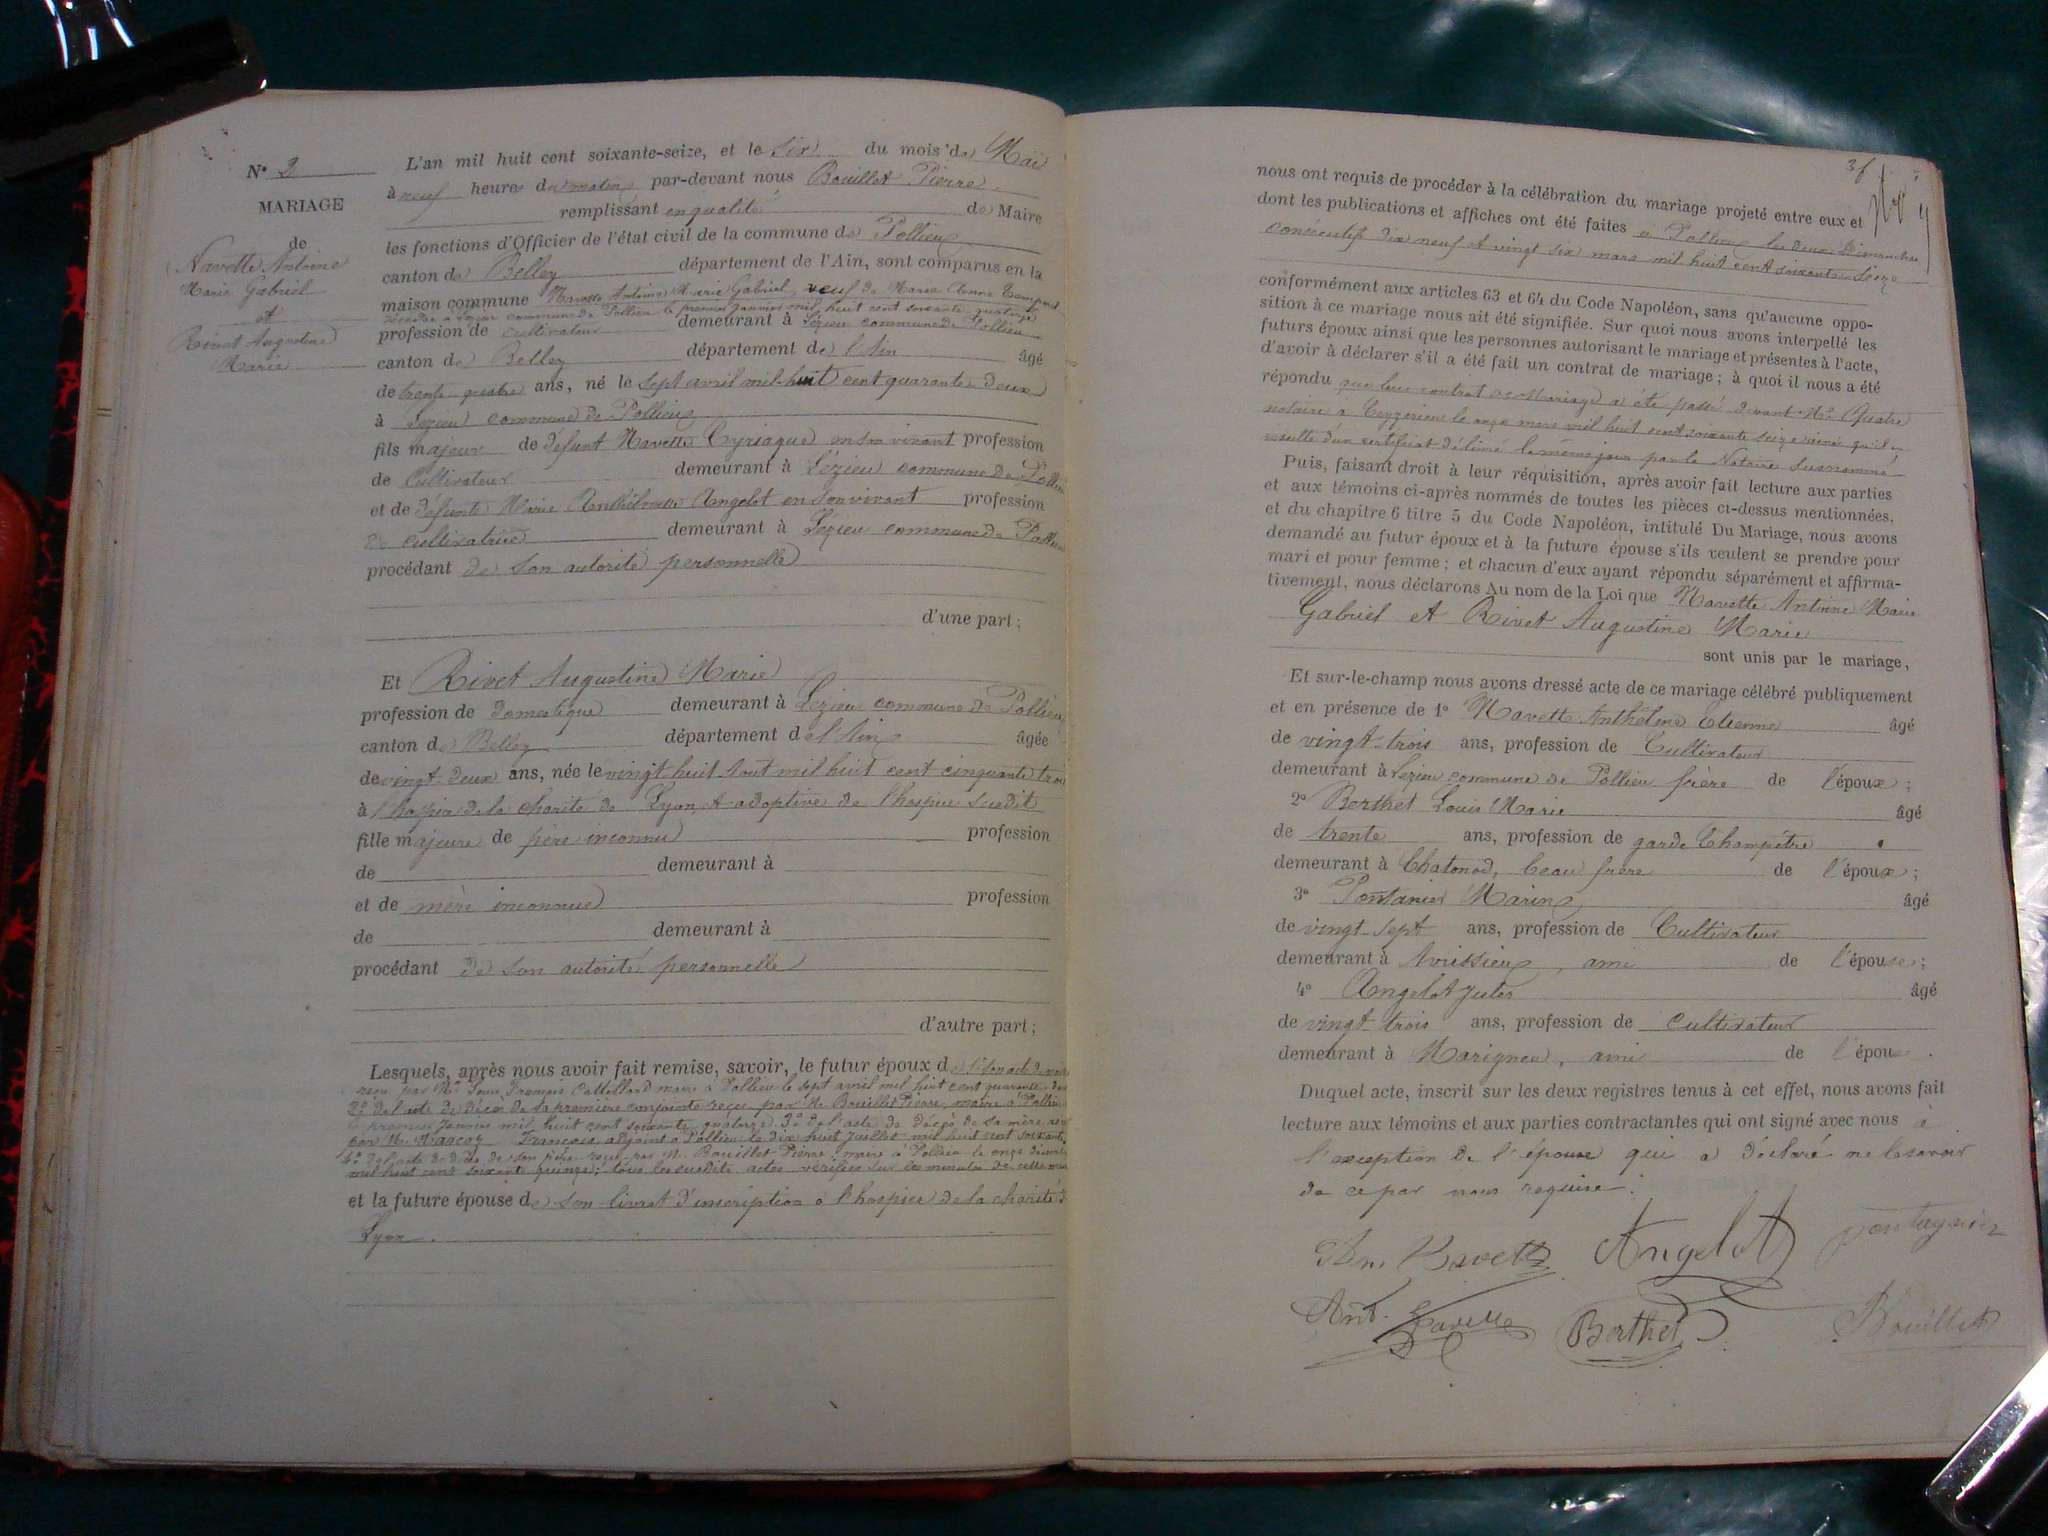 N° 2
MARIAGE
de
Navette Antoine
Marie Gabriel
et
Rivet Augustine
Marie
L'an mil huit cent soixante-seize, et le six du mois de Mai
à neuf heures du matin par-devant nous Bouillet Pierre
remplissant en qualité de Maire
les fonctions d'Officier de l'état civil de la commune de Pollieu
canton de Belley département de l'Ain, sont comparus en la
maison commune Navette Antoine Marie Gabriel, veuf de Marie Anne
décédée à Lézieu commune de Pollieu le premier Janvier mil huit cent soixante quatorze
profession de cultivateur demeurant à Lézieu commune de Pollieu
canton de Belley département de l'Ain âgé
de trente-quatre ans, né le sept avril mil-huit cent quarante deux
à Lézieu commune de Pollieu
fils majeur de défunt Navette Cyriaque en son vivant profession
de Cultivateur demeurant à Lézieu commune de Pollieu
et de défunte Marie Anthelmette Angelot en son vivant profession
de cultivatrice demeurant à Lézieu commune de Pollieu
procédant de son autorité personnelle
d'une part;
Et Rivet Augustine Marie
profession de domestique demeurant à Lézieu commune de Pollieu
canton de Belley département de l'Ain âgée
de vingt-deux ans, née le vingt huit Aout mil huit cent cinquante trois
à l'hospice de la charité de Lyon et adoptive de l'hospice susdit
fille majeure de père inconnu profession
de demeurant à
et de mère inconnue profession
de demeurant à
procédant de son autorité personnelle
d'autre part;
Lesquels, après nous avoir fait remise, savoir, le futur époux de 1° son acte de
reçu par Mr Louis François maire à Pollieu le sept avril mil huit cent quarante-deux
2° de l'acte de décès de sa première conjointe reçu par Mr Bouillet Pierre, maire à Pollieu
le premier Janvier mil huit cent soixante quatorze 3° de l'acte de décès de sa mère reçu
par Mr François, adjoint à Pollieu le dix huit Juillet mil huit cent soixante
4° de l'acte de décès de son père reçu par Mr Bouillet Pierre, maire à Pollieu le onze
mil huit cent soixante quinze; tous les susdits actes vérifiés sur les minutes de cette
et la future épouse de son livret d'inscription à l'hospice de la charité de
Lyon.
nous ont requis de procéder à la célébration du mariage projeté entre eux et
dont les publications et affiches ont été faites à Pollieu les deux dimanches
consécutifs dix neuf et vingt six mars mil huit cent soixante Seize
conformément aux articles 63 et 64 du Code Napoléon, sans qu'aucune oppo-
sition à ce mariage nous ait été signifiée. Sur quoi nous avons interpellé les
futurs époux ainsi que les personnes autorisant le mariage et présentes à l'acte,
d'avoir à déclarer s'il a été fait un contrat de mariage; à quoi il nous a été
répondu que leur contrat de mariage a été passé devant Me Quatre
notaire à Ceyzerieu le onze mars mil huit cent soixante seize ainsi qu'il en
résulte d'un certificat délivré le même jour par le Notaire susnommé
Puis, faisant droit à leur réquisition, après avoir fait lecture aux parties
et aux témoins ci-après nommés de toutes les pièces ci-dessus mentionnées,
et du chapitre 6 titre 5 du Code Napoléon, intitulé Du Mariage, nous avons
demandé au futur époux et à la future épouse s'ils veulent se prendre pour
mari et pour femme; et chacun d'eux ayant répondu séparément et affirma-
tivement, nous déclarons Au nom de la Loi que Navette Antoine Marie
Gabriel et Rivet Augustine Marie
sont unis par le mariage,
Et sur-le-champ nous avons dressé acte de ce mariage célébré publiquement
et en présence de 1° Navette Anthelme Etienne âgé
de vingt-trois ans, profession de Cultivateur
demeurant à Lézieu commune de Pollieu frère de l'époux;
2° Berthet Louis Marie âgé
de trente ans, profession de garde Champêtre
demeurant à Chatonod, beau frère de l'époux;
3° Pontanier Marin âgé
de vingt-sept ans, profession de Cultivateur
demeurant à Avressieux, ami de l'épouse;
4° Angelot Jules âgé
de vingt-trois ans, profession de cultivateur
demeurant à Marigneu, ami de l'épouse.
Duquel acte, inscrit sur les deux registres tenus à cet effet, nous avons fait
lecture aux témoins et aux parties contractantes qui ont signé avec nous à
l'exception de l'épouse qui a déclaré ne le savoir
de ce par nous requise.
Navette Angelot pontagnier
Ant. Navette Berthet Bouillet